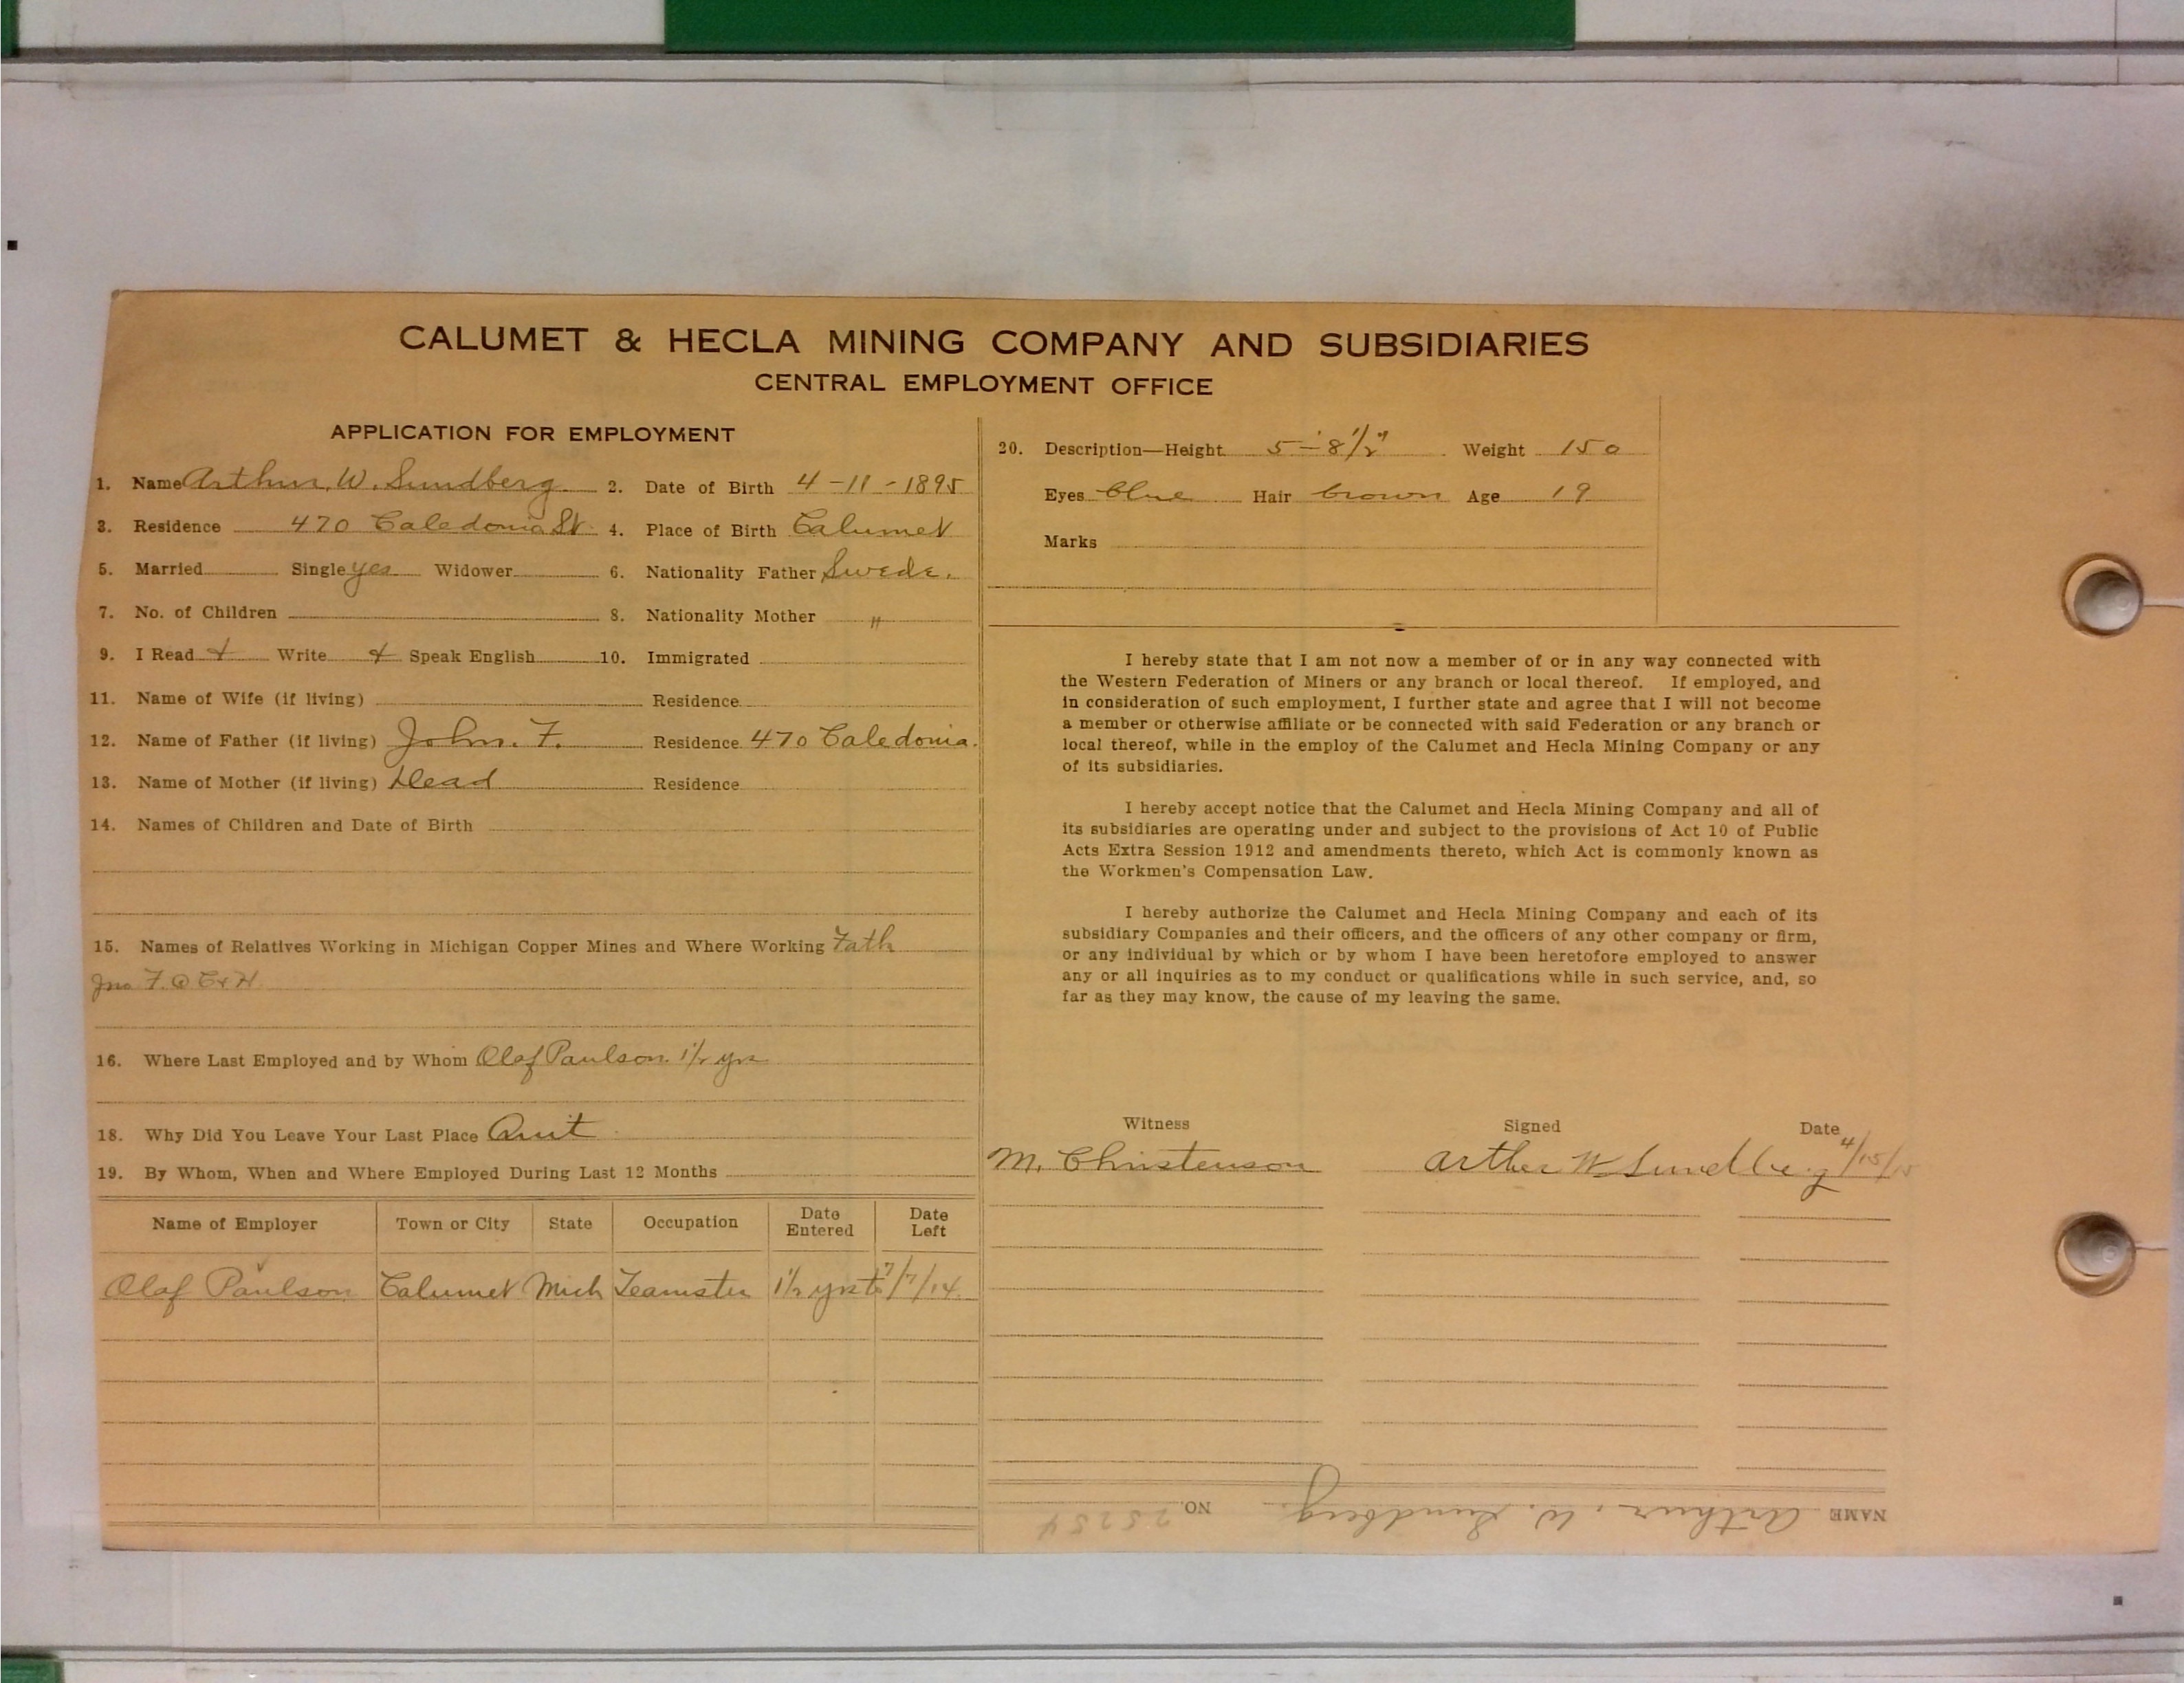 CALUMET & HECLA MINING COMPANY AND SUBSIDIARIES
CENTRAL EMPLOYMENT OFFICE
APPLICATION FOR EMPLOYMENT
1. Name Arthur. W. Sundberg 2. Date of Birth 4-11-1895
3. Residence 470 Caledonia St. 4. Place of Birth Calumet
5. Married Single yes Widower 6. Nationality Father Swede.
7. No. of Children 8. Nationality Mother "
9. I Read Write Speak English 10. Immigrated
11. Name of Wife (if living) Residence
12. Name of Father (if living) John. F. Residence 470 Caledonia.
13. Name of Mother (if living) Dead Residence
14. Names of Children and Date of Birth
15. Names of Relatives Working in Michigan Copper Mines and Where Working Fath
Jno F. @ C & H
16. Where Last Employed and by Whom Olaf Paulson. 1½ yrs
18. Why Did You Leave Your Last Place Quit
19. By Whom, When and Where Employed During Last 12 Months
Name of Employer Town or City State Occupation Date Entered Date Left
Olaf Paulson Calumet Mich Teamster 1½ yrs to 7/7/14.
20. Description—Height 5'-8½" Weight 150
Eyes blue Hair brown Age 19
Marks
I hereby state that I am not now a member of or in any way connected with
the Western Federation of Miners or any branch or local thereof. If employed, and
in consideration of such employment, I further state and agree that I will not become
a member or otherwise affiliate or be connected with said Federation or any branch or
local thereof, while in the employ of the Calumet and Hecla Mining Company or any
of its subsidiaries.
I hereby accept notice that the Calumet and Hecla Mining Company and all of
its subsidiaries are operating under and subject to the provisions of Act 10 of Public
Acts Extra Session 1912 and amendments thereto, which Act is commonly known as
the Workmen's Compensation Law.
I hereby authorize the Calumet and Hecla Mining Company and each of its
subsidiary Companies and their officers, and the officers of any other company or firm,
or any individual by which or by whom I have been heretofore employed to answer
any or all inquiries as to my conduct or qualifications while in such service, and, so
far as they may know, the cause of my leaving the same.
Witness Signed Date
M. Christenson Arther W Sundberg 4/15/15
NAME Arthur. W. Sundberg. NO. 25254